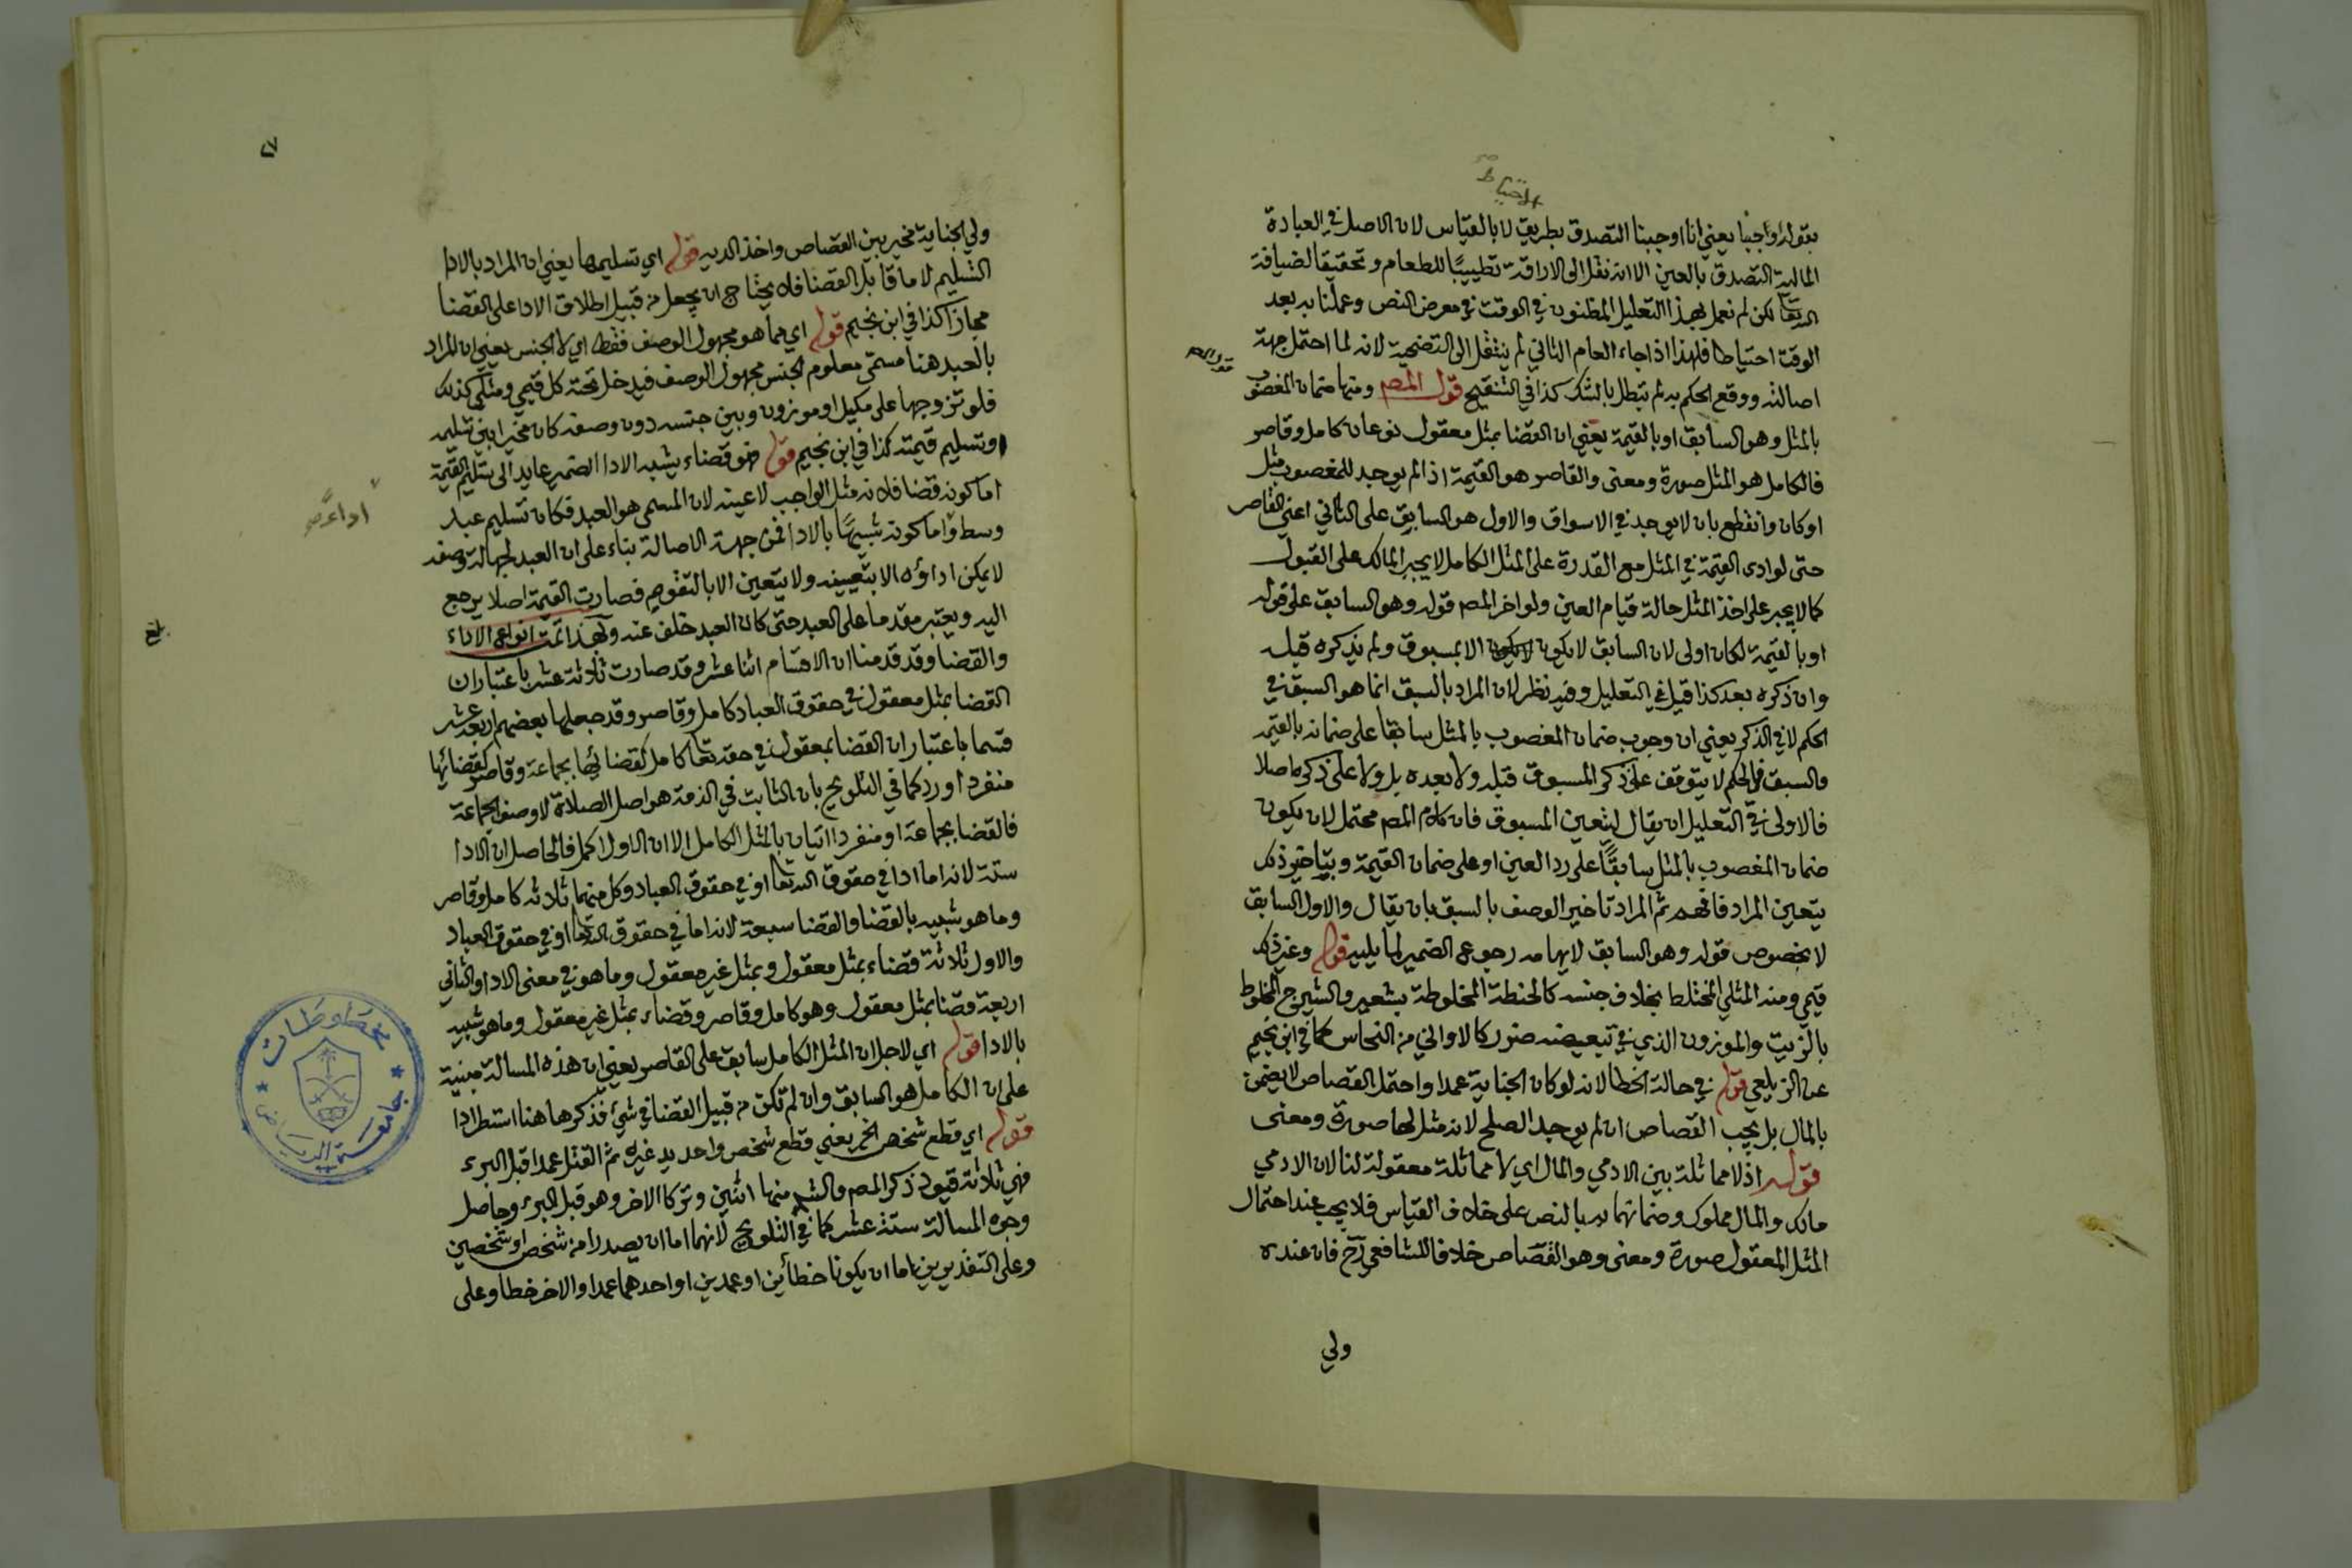 الاحتياط صح
بقوله واجبنا يعني انا اوجبنا التصدق بطريق لا بالقياس لان الاصل في العبادة
المالية التصدق بالعين الا انه نقل الى الاراقة تطييبًا للطعام وتحقيقا لضيافة
الله تعا لكن لم نعمل بهذا التعليل المظنون في الوقت في معرض النص وعملنا به بعد
الوقت احتياطا فلهذا اذا جاء العام الثاني لم ينتقل الى التضحية لانه لما احتمل جهة
اصالته ووقع الحكم به لم يبطل بالشك كذا في التنقيح قول المص ومنها ضمان المغصوب
بالمثل وهو السابق او بالقيمة يعني ان القضا بمثل معقول نوعان كامل وقاصر
فالكامل هو المثل صورة ومعنى والقاصر هو القيمة اذا لم يوجد للمغصوب مثل
او كان وانقطع بان لا يوجد في الاسواق والاول هو السابق على الثاني اعني القاصر
حتى لو ادى القيمة في المثل مع القدرة على المثل الكامل لا يجبر المالك على القبول
كما لا يجبر على اخذ المثل حالة قيام العين ولو اخر المص قوله وهو السابق على قوله
او بالقيمة لكان اولى لان السابق لا يكون الا بمسبوق ولم يذكره قبل
وان ذكره بعد كذا قيل في التعليل وفيه نظر لان المراد بالسبق انما هو السبق في
الحكم لا في الذكر يعني ان وجوب ضمان المغصوب بالمثل سابقا على ضمانه بالقيمة
والسبق في الحكم لا يتوقف على ذكر المسبوق قبله ولا بعده بل ولا على ذكره اصلا
فالاولى في التعليل ان يقال ليتعين المسبوق فان كلام المص محتمل لان يكون
ضمان المغصوب بالمثل سابقًا على رد العين او على ضمان القيمة وبتاخير ذلك
يتعين المراد فافهم ثم المراد تاخير الوصف بالسبق بان يقال والاول السابق
لا بخصوص قوله وهو السابق لايهامه رجوع الضمير لما يليه قوله وغير ذلك
قيمي ومنه المثلي المختلط بخلاف جنسه كالحنطة المخلوطة بشعير والشيرج المخلوط
بالزيت والموزون الذي في تبعيضه ضرر كالاواني من النحاس كما في ابن نجيم
عن الزيلعي قوله في حالة الخطا لانه لو كان الجناية عمدا واحتمل القصاص لا يضمن
بالمال بل يجب القصاص ان لم يوجد الصلح لانه مثل لها صورة ومعنى
قوله اذ لا مماثلة بين الادمي والمال اي لا مماثلة معقولة لنا لان الادمي
مالك والمال مملوك وضمانها به بالنص على خلاف القياس فلا يجب عند احتمال
المثل المعقول صورة ومعنى وهو القصاص خلافا للشافعي رح فان عنده
ولي
٤٧
ولي الجناية مخير بين القصاص واخذ الدية قوله اي تسليمها يعني ان المراد بالادا
التسليم لا ما قابل القضا فلا يحتاج ان يجعل من قبيل اطلاق الادا على القضا
مجازا كذا في ابن نجيم قوله اي مما هو مجهول الوصف فقط اي لا الجنس يعني ان المراد
بالعبد هنا مسمى معلوم الجنس مجهول الوصف فيدخل تحته كل قيمي ومثلي كذلك
فلو تزوجها على مكيل او موزون وبين جنسه دون وصفه كان مخيرا بين تسليمه
وتسليم قيمته كذا في ابن نجيم قوله هو قضاء يشبه الادا الضمير عايد الى تسليم القيمة
اما كونه قضا فلانه مثل الواجب لا عينه لان المسمى هو العبد فكان تسليم عبد
اداء صح
وسط واما كونه شبيهًا بالادا فمن جهة الاصالة بناء على ان العبد لجهالة وصفه
لا يمكن اداؤه الا بتعيينه ولا يتعين الا بالتقويم فصارت القيمة اصلا يرجع
اليه ويعتبر مقدما على العبد حتى كان العبد خلف عنه وبهذا تمت انواع الاداء
بلغ
والقضا وقد قدمنا ان الاقسام اثنا عشر وقد صارت ثلاثة عشر باعتبار ان
القضا بمثل معقول في حقوق العباد كامل وقاصر وقد جعلها بعضهم اربعة عشر
قسما باعتبار ان القضا بمعقول في حقه تعا كامل كقضائها بجماعة وقاصر كقضائها
منفردا ورد كما في التلويح بان الثابت في الذمة هو اصل الصلاة لا وصف الجماعة
فالقضا بجماعة او منفردا اتيان بالمثل الكامل الا ان الاول اكمل فالحاصل ان الادا
ستة لانه اما ادا في حقوق الله تعا او في حقوق العباد وكل منهما ثلاثة كامل وقاصر
وما هو شبيه بالقضا والقضا سبعة لانه اما في حقوق الله تعا او في حقوق العباد
والاول ثلاثة قضاء بمثل معقول وبمثل غير معقول وما هو في معنى الادا والثاني
اربعة قضا بمثل معقول وهو كامل وقاصر وقضاء بمثل غير معقول وما هو شبيه
بالادا قوله اي لاجل ان المثل الكامل سابق على القاصر يعني ان هذه المسالة مبنية
على ان الكامل هو السابق وان لم تكن من قبيل القضا في شيء فذكرها هنا استطرادا
قوله اي قطع شخص الخ يعني قطع شخص واحد يد غيره ثم القتل عمدا قبل البرء
فهي ثلاثة قيود ذكر المص والشـ منها اثنين وتركا الاخر وهو قبل البرء وحاصل
وجوه المسالة ستة عشر كما في التلويح لانهما اما ان يصدرا من شخص او شخصين
وعلى التقديرين اما ان يكونا خطأين او عمدين او احدهما عمدا والاخر خطا وعلى
مخطوطات
جامعة الرياض